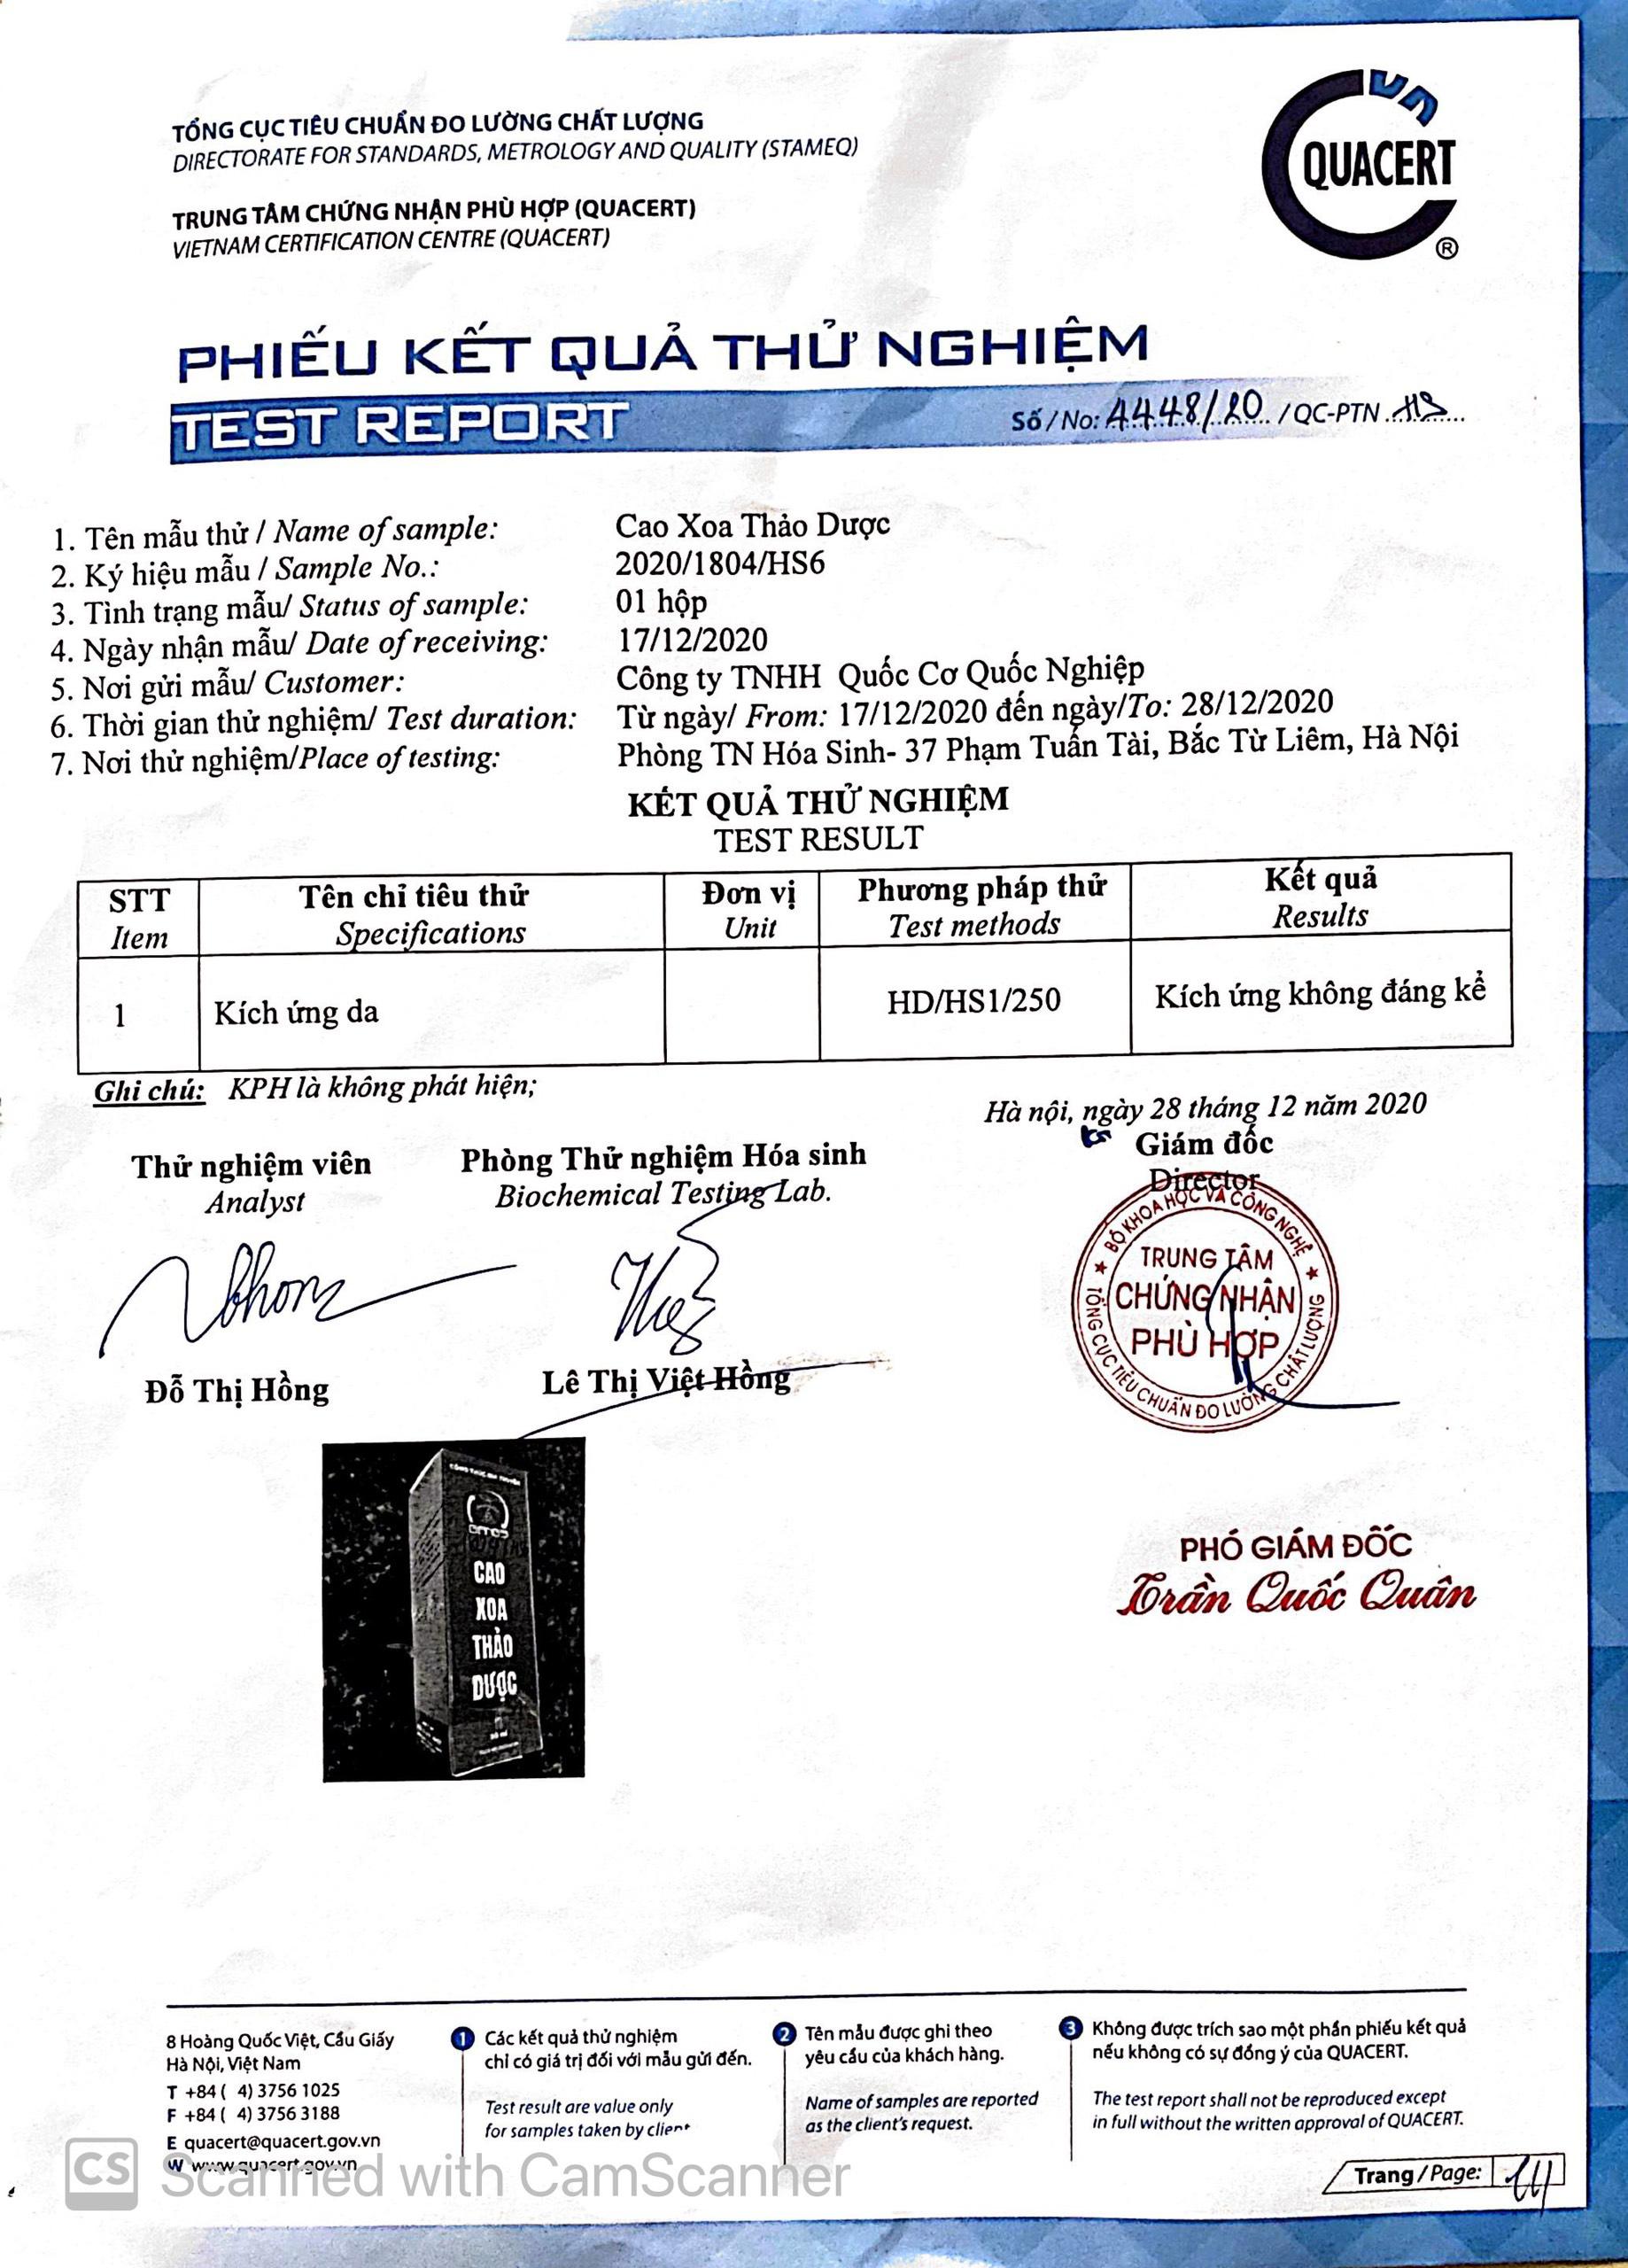 TỔNG CỤC TIÊU CHUẨN ĐO LƯỜNG CHẤT LƯỢNG
DIRECTORATE FOR STANDARDS, METROLOGY AND QUALITY (STAMEQ)
TRUNG TÂM CHỨNG NHẬN PHÙ HỢP (QUACERT)
VIETNAM CERTIFICATION CENTRE (QUACERT)
QUACERT
®
PHIẾU KẾT QUẢ THỬ NGHIỆM
TEST REPORT
Số / No: 4448/20 / QC-PTN HS
1. Tên mẫu thử / Name of sample: Cao Xoa Thảo Dược
2. Ký hiệu mẫu / Sample No.: 2020/1804/HS6
3. Tình trạng mẫu/ Status of sample: 01 hộp
4. Ngày nhận mẫu/ Date of receiving: 17/12/2020
5. Nơi gửi mẫu/ Customer: Công ty TNHH Quốc Cơ Quốc Nghiệp
6. Thời gian thử nghiệm/ Test duration: Từ ngày/ From: 17/12/2020 đến ngày/To: 28/12/2020
7. Nơi thử nghiệm/Place of testing: Phòng TN Hóa Sinh- 37 Phạm Tuấn Tài, Bắc Từ Liêm, Hà Nội
KẾT QUẢ THỬ NGHIỆM
TEST RESULT
STT Tên chỉ tiêu thử Đơn vị Phương pháp thử Kết quả
Item Specifications Unit Test methods Results
1 Kích ứng da HD/HS1/250 Kích ứng không đáng kể
Ghi chú: KPH là không phát hiện;
Hà nội, ngày 28 tháng 12 năm 2020
Thử nghiệm viên
Analyst
Phòng Thử nghiệm Hóa sinh
Biochemical Testing Lab.
Giám đốc
Director
BỘ KHOA HỌC VÀ CÔNG NGHỆ
TRUNG TÂM
CHỨNG NHẬN
PHÙ HỢP
TỔNG CỤC TIÊU CHUẨN ĐO LƯỜNG CHẤT LƯỢNG
Đỗ Thị Hồng
Lê Thị Việt Hồng
CAO
XOA
THẢO
DƯỢC
PHÓ GIÁM ĐỐC
Trần Quốc Quân
8 Hoàng Quốc Việt, Cầu Giấy
Hà Nội, Việt Nam
T +84 ( 4) 3756 1025
F +84 ( 4) 3756 3188
E quacert@quacert.gov.vn
W www.quacert.gov.vn
1 Các kết quả thử nghiệm
chỉ có giá trị đối với mẫu gửi đến.
Test result are value only
for samples taken by client
2 Tên mẫu được ghi theo
yêu cầu của khách hàng.
Name of samples are reported
as the client's request.
3 Không được trích sao một phần phiếu kết quả
nếu không có sự đồng ý của QUACERT.
The test report shall not be reproduced except
in full without the written approval of QUACERT.
Trang / Page: 1/1
CS Scanned with CamScanner